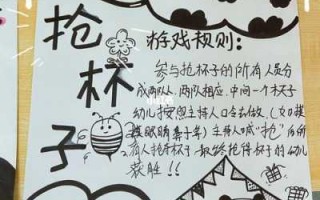 抢杯子
游戏规则:
参与抢杯子的所有人员分
成两队,两队相应,中间一个杯子
幼儿按照主持人口令去做,(如摸
摸眼睛鼻子等)主持人喊"抢"后所
有人抢杯子,最终抢得杯子的幼儿
获胜!!